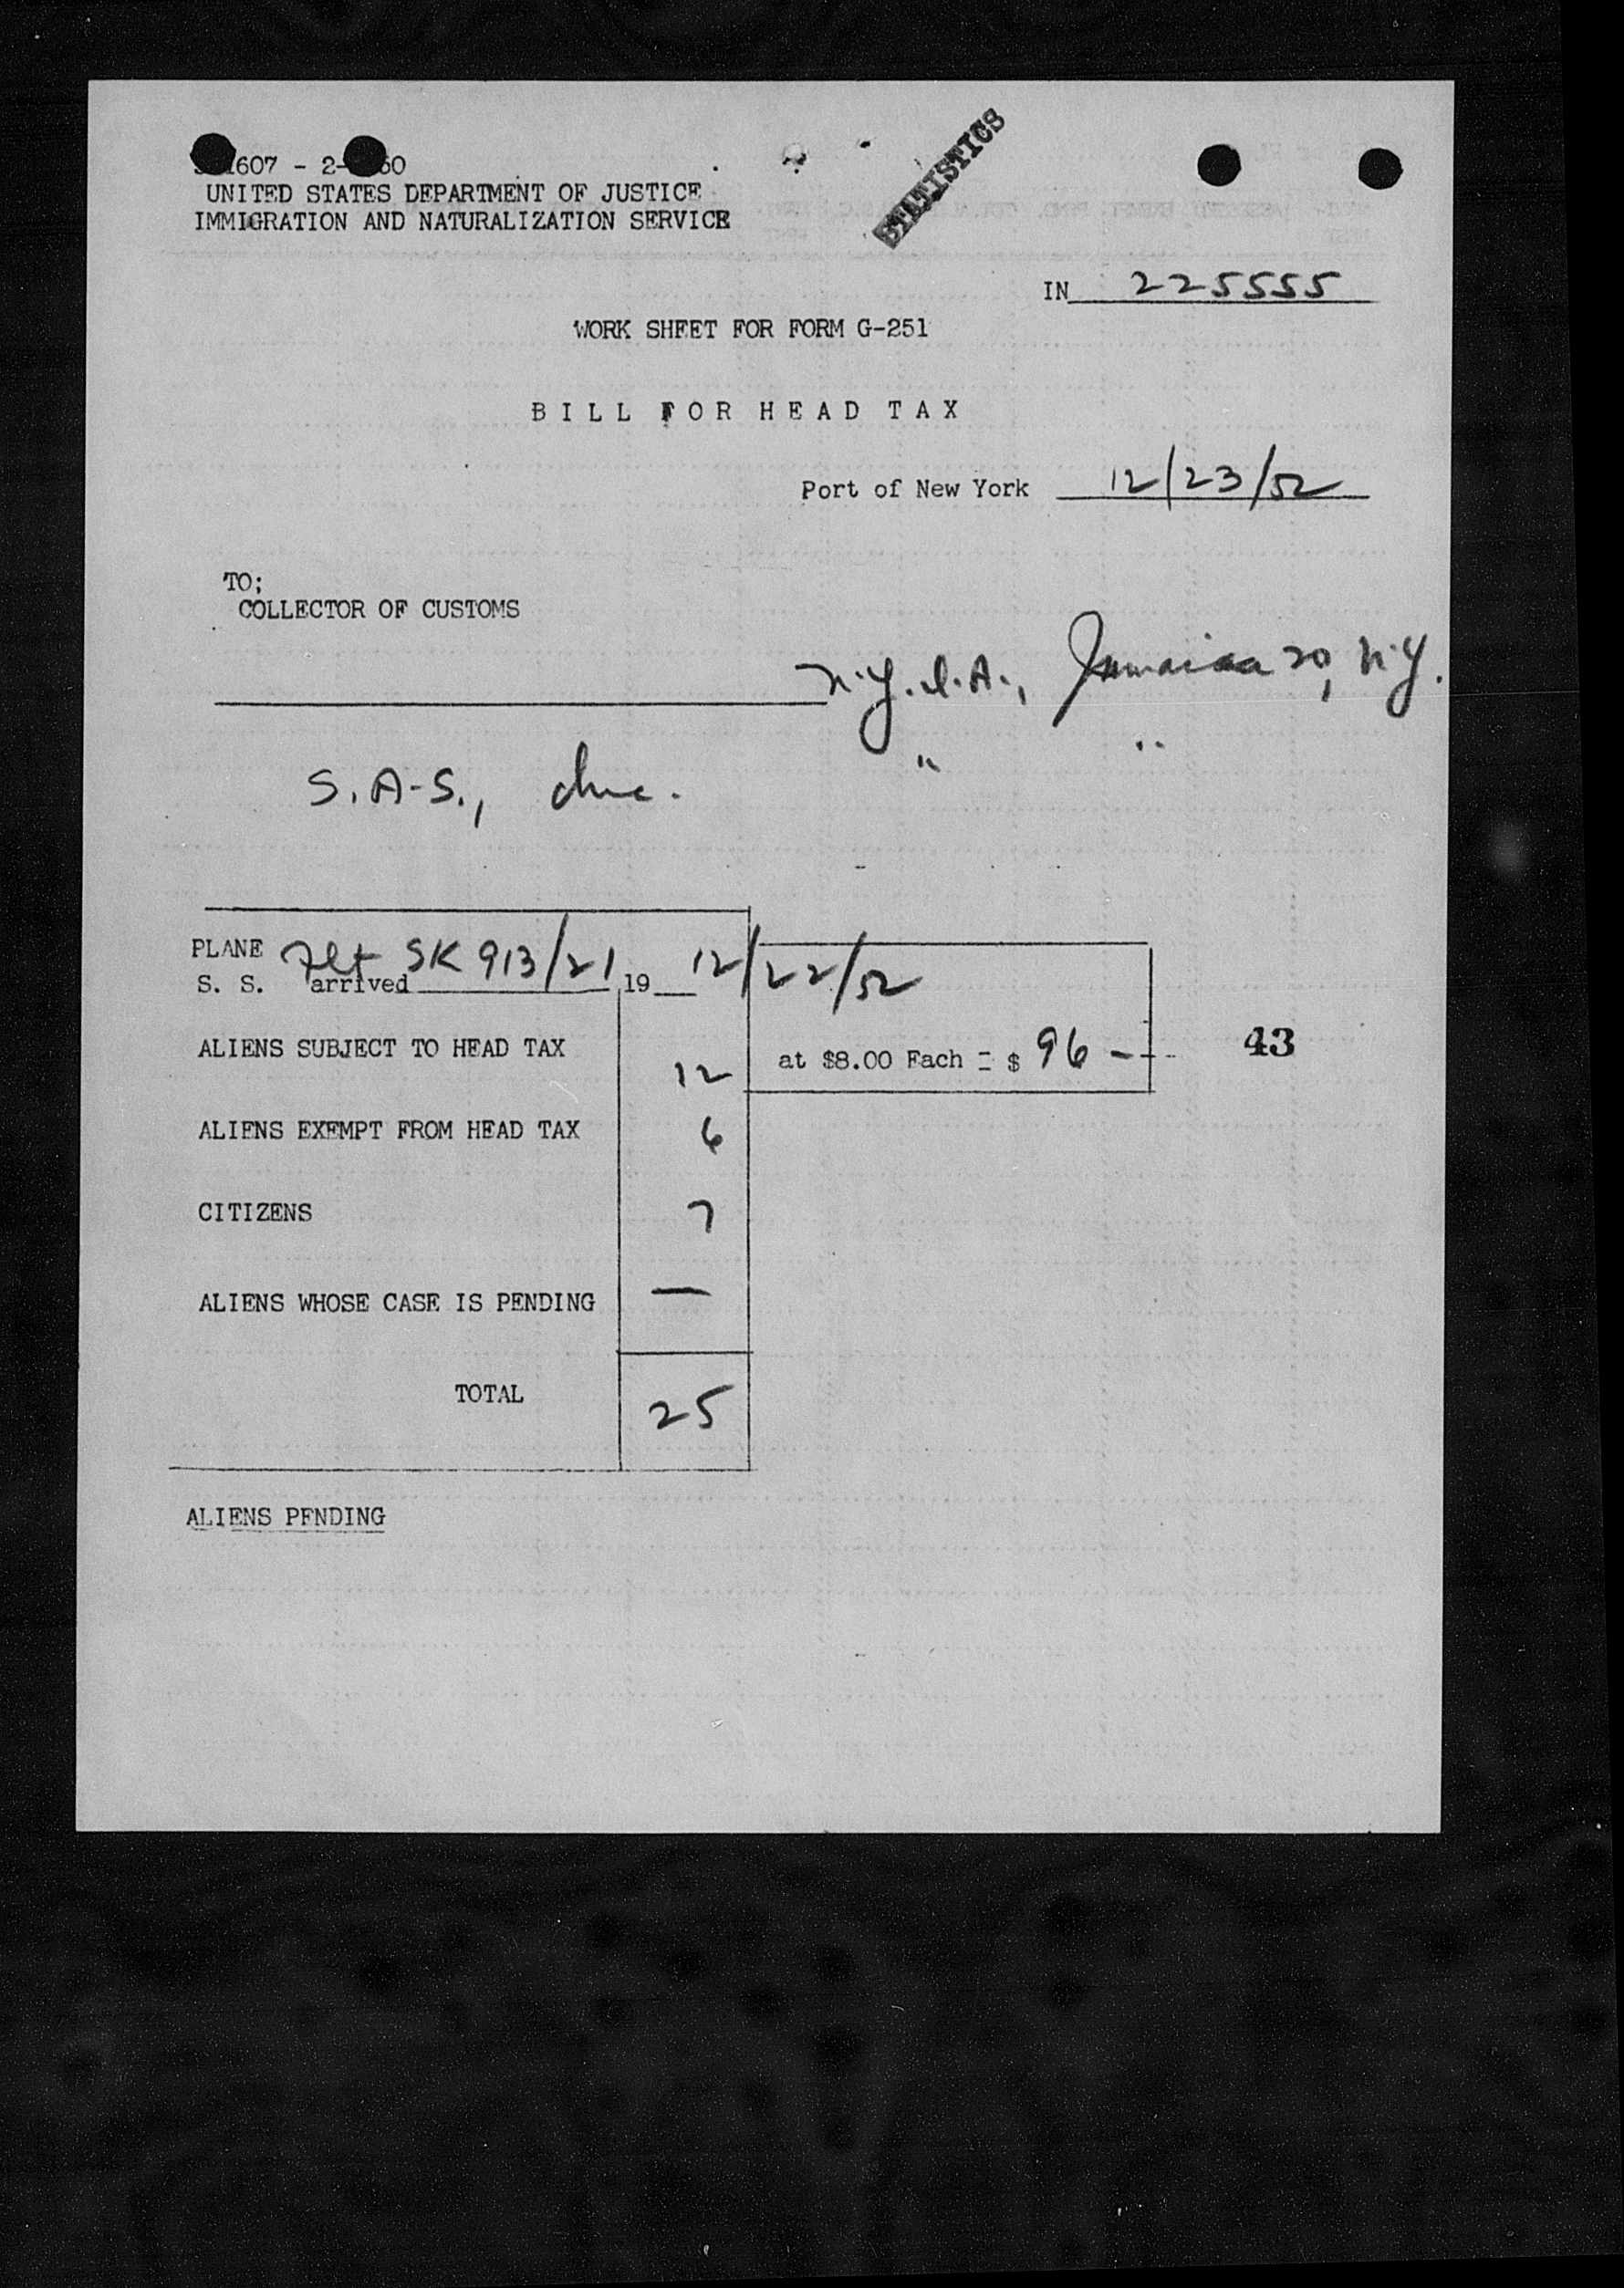 607 - 2- 50
UNITED STATES DEPARTMENT OF JUSTICE
IMMIGRATION AND NATURALIZATION SERVICE
STATISTICS
IN 225555
WORK SHEET FOR FORM G-251
BILL FOR HEAD TAX
Port of New York 12/23/52
TO;
COLLECTOR OF CUSTOMS
N.Y.I.A., Jamaica 20, N.Y.
S.A.S., Inc. " "
PLANE Flt SK 913/21 12/22/52
S. S. arrived 19
ALIENS SUBJECT TO HEAD TAX 12 at $8.00 Each = $ 96 - 43
ALIENS EXEMPT FROM HEAD TAX 6
CITIZENS 7
ALIENS WHOSE CASE IS PENDING —
TOTAL 25
ALIENS PENDING